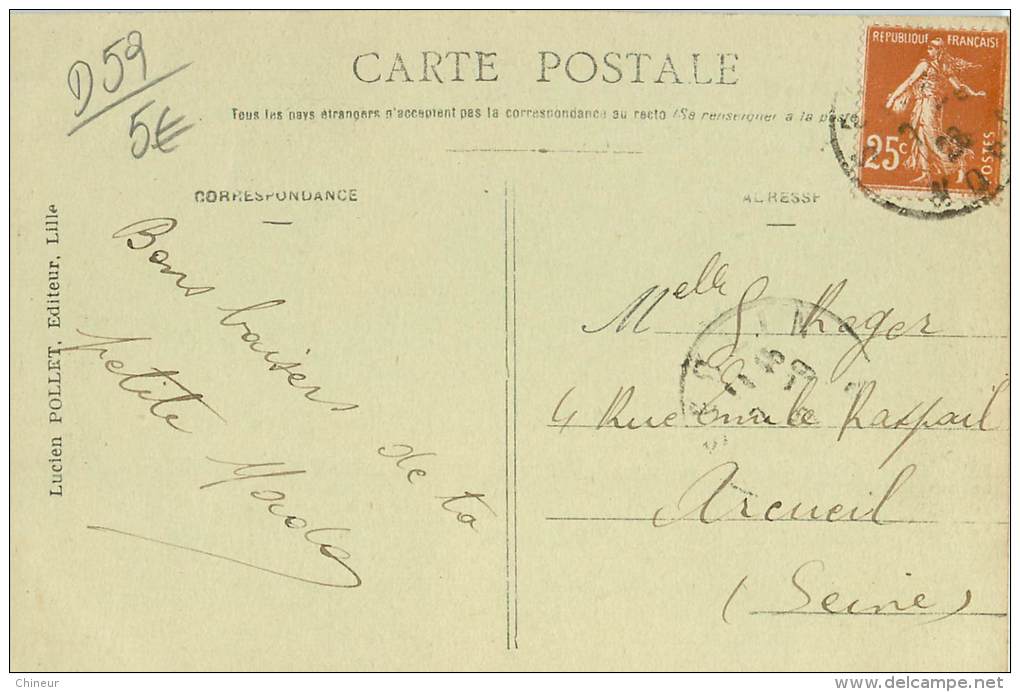 D59
5€
CARTE POSTALE
Tous les pays étrangers n'acceptent pas la correspondance au recto (Se renseigner à la poste
RÉPUBLIQUE FRANÇAISE
25c
POSTES
CORRESPONDANCE
ADRESSE
Lucien POLLET, Editeur, Lille
Bons baisers de ta
petite Mado
Melle G. Roger
4 Rue Emile Raspail
Arcueil
(Seine)
Chineur
www.delcampe.net